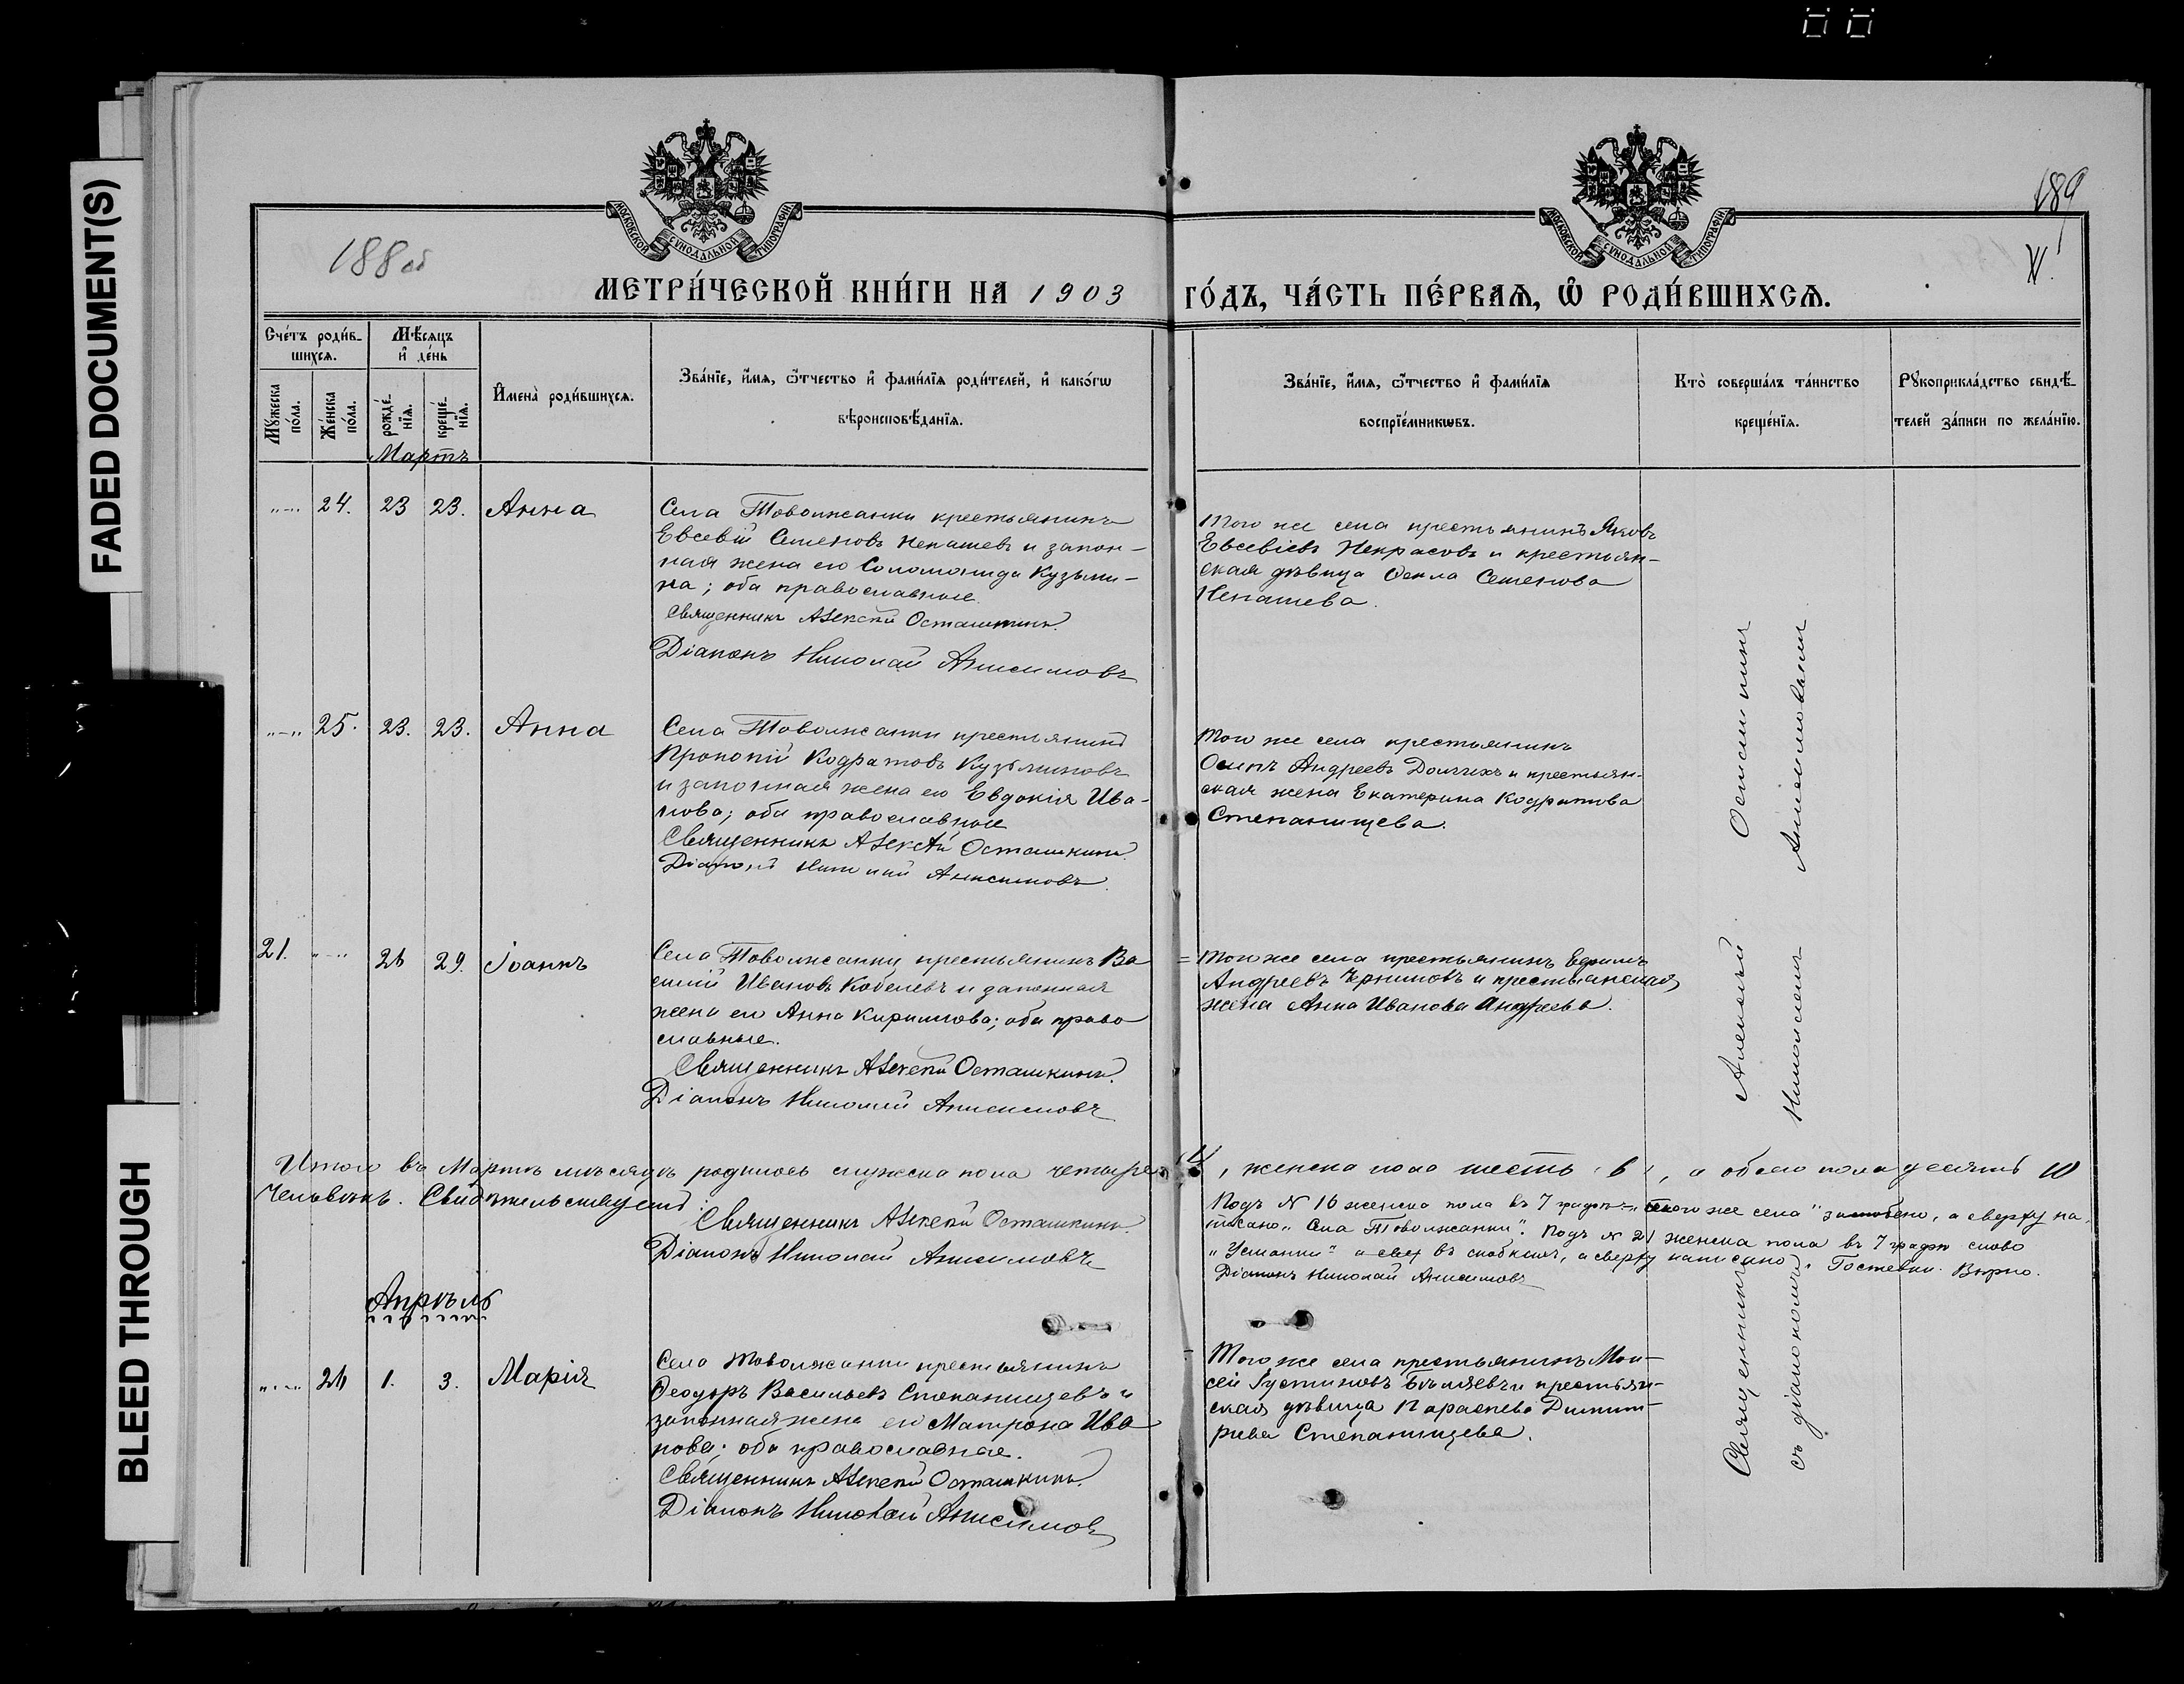 FADED DOCUMENT(S)
BLEED THROUGH
188 об
189
МОСКОВСКОЙ СѴНОДАЛЬНОЙ ТИПОГРАФІИ
МОСКОВСКОЙ СѴНОДАЛЬНОЙ ТИПОГРАФІИ
МЕТРИ́ЧЕСКОЙ КНИ́ГИ НА 1903 ГО́ДЪ, ЧА́СТЬ ПЕ́РВАѦ, Ѽ РОДИ́ВШИХСѦ.
Сче́тъ роди́в-
шихсѧ.
Мѣ́сѧцъ
и҆ де́нь
Мꙋ́жеска
по́ла.
Же́нска
по́ла.
рожде́-
нїѧ.
креще́-
нїѧ.
И҆мена̀ роди́вшихсѧ.
Зва́нїе, и҆́мѧ, ѻ҆́тчество и҆ фами́лїѧ роди́телей, и҆ како́гѡ
вѣроисповѣ́данїѧ.
Зва́нїе, и҆́мѧ, ѻ҆́тчество и҆ фами́лїѧ
воспрїе́мникѡвъ.
Кто̀ соверша́лъ та́инство
креще́нїѧ.
Рꙋкоприкла́дство свидѣ́-
телей за́писи по жела́нїю.
Мартъ
"–" 24. 23 23. Анна
Села Товолжанки крестьянинъ
Евсевій Семеновъ Ненашевъ и закон-
ная жена его Соломонида Кузьми-
на; оба православные
Священникъ Алексѣй Осташкинъ.
Діаконъ Николай Анисимовъ
Того же села крестьянинъ Яковъ
Евсевіевъ Некрасовъ и крестьян-
ская дѣвица Ѳекла Семенова
Ненашева.
"–" 25. 23. 23. Анна
Села Товолжанки крестьянинъ
Прокопій Кодратовъ Кузьминовъ
и законная жена его Евдокія Ива-
нова; оба православные
Священникъ Алексѣй Осташкинъ.
Діаконъ Николай Анисимовъ.
Того же села крестьянинъ
Осипъ Андреевъ Долгихъ и крестьян-
ская жена Екатерина Кодратова
Степанищева.
21. "–" 26 29. Іоаннъ
Села Товолжанки крестьянинъ Ва
силій Ивановъ Кобелевъ и законная
жена его Анна Кирилова; оба право
славные.
Священникъ Алексѣй Осташкинъ.
Діаконъ Николай Анисимовъ
= Того же села крестьянинъ Ефимъ
Андреевъ Черниковъ и крестьянская
жена Анна Иванова Андреева.
Итого въ Мартѣ мѣсяцѣ родилось мужска пола четыре 4, женска пола шесть 6, а обоего пола десять 10
Человѣкъ. Свидѣтельствуемъ:
Священникъ Алексѣй Осташкинъ
Діаконъ Николай Анисимовъ
Подъ № 16 женска пола въ 7 графѣ "того же села" , а сверху на
писано "Села Товолжанки". Подъ № 21 женска пола въ 7 графѣ слово
"Усманки" въ скобкахъ, а сверху написано Гостевки. Вѣрно.
Діаконъ Николай Анисимовъ
Апрѣль
"–" 26 1. 3. Марія
Села Товолжанки крестьянинъ
Ѳеодоръ Васильевъ Степанищевъ и
законная жена его Матрона Ива
нова; оба православные.
Священникъ Алексѣй Осташкинъ.
Діаконъ Николай Анисимовъ
Того же села крестьянинъ Мои-
сей Іустиновъ Бѣляевъ и крестьян-
ская дѣвица Параскева Димит-
ріева Степанищева.
Священникъ Алексѣй Осташкинъ
съ діакономъ Николаемъ Анисимовымъ